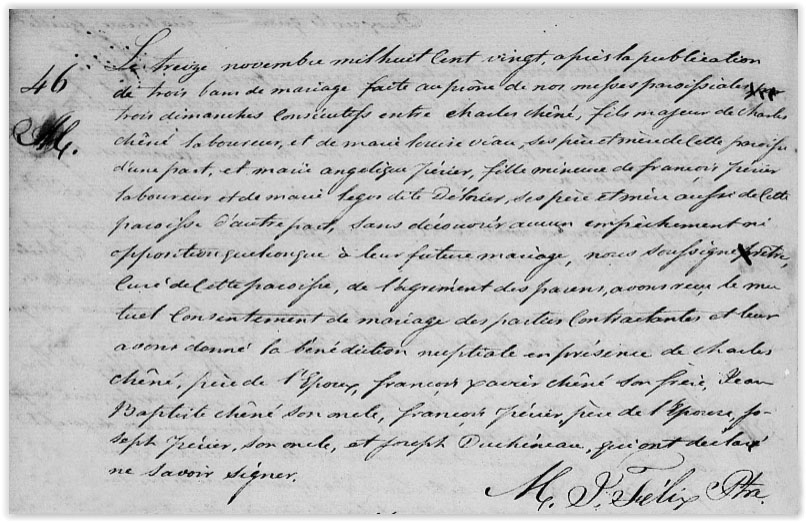 Le treize novembre mil huit cent vingt, après la publication
46
de trois bans de mariage faite au prône de nos messes paroissiales
trois dimanches consécutifs entre charles chêné, fils majeur de Charles
M.
chêné laboureur, et de marie louise viau, ses père et mère de cette paroisse
d'une part, et marie angelique Périer, fille mineure de françois Périer
laboureur et de marie legos dite, ses père et mère aussi de cette
paroisse d'autre part, sans découvrir aucun empêchement ni
opposition quelconque à leur future mariage, nous soussigné prêtre,
curé de cette paroisse, de l'agrément des parens, avons reçu le mu
tuel consentement de mariage des parties contractantes et leur
avons donné la bénédiction nuptiale en présence de charles
chêné, père de l'Epoux, françois xavier chêné son frère, Jean
Baptiste chêné son oncle, françois Périer, père de l'Epouse, jo-
seph Périer, son oncle, et joseph Duchêneau, qui ont déclaré
ne savoir signer.
M. J. Félix Ptre.